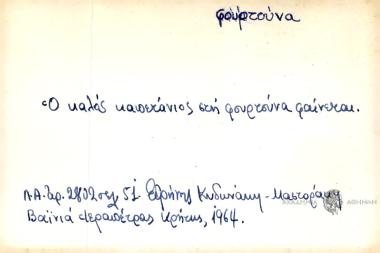 φουρτούνα
Ὁ καλός καπετάνιος στή φουρτούνα φαίνεται.
Λ.Α. ἀρ. 2802 σελ. 51 Εἰρήνης Κυδωνάκη-Μαστοράκη
Βαϊνιά Ἱεραπέτρας Κρήτης, 1964.
ΑΚΑΔΗΜΙΑ ΑΘΗΝΩΝ